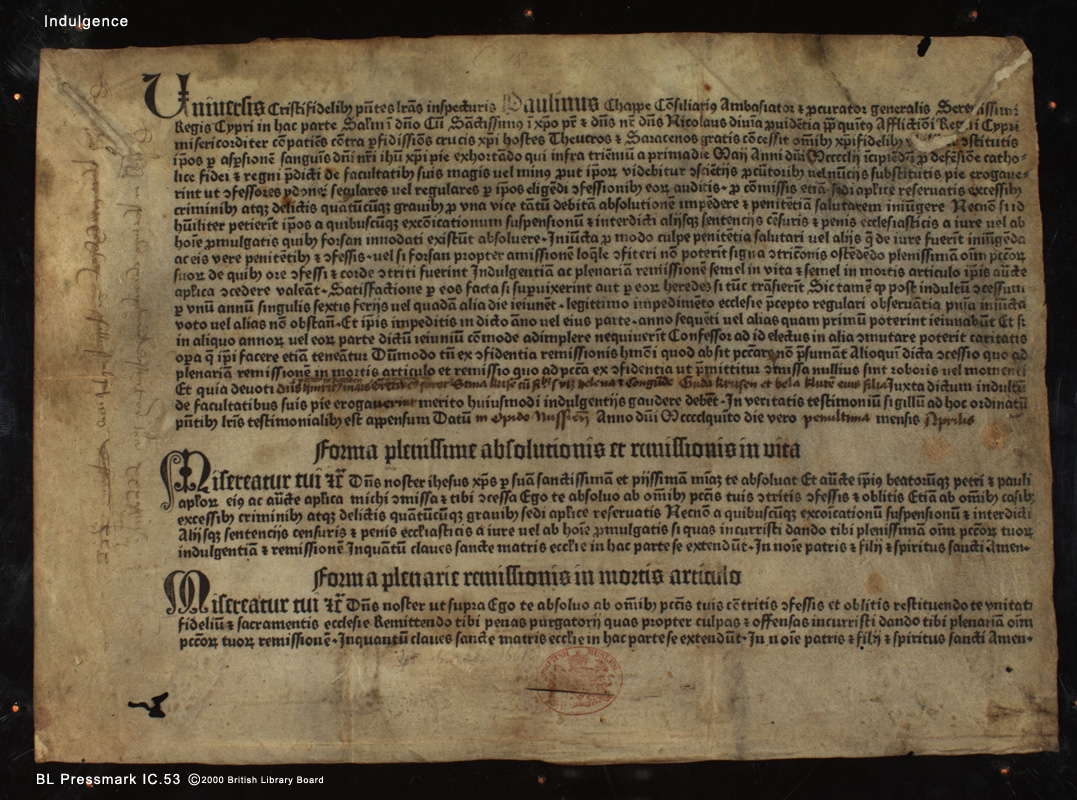 Indulgence
Universis Cristifidelibꝫ pñtes lr̃as inspecturis Paulinus Chappe Cõsiliariꝰ Ambasiator ⁊ ꝓcurator generalis Sere issimi
Regis Cypri in hac parte Salt̃m ĩ dño Cũ Sãctissimꝰ ĩ xp̃o pr̃ ⁊ dñs nr̃ dñs Nicolaus diuĩa ꝓuidẽtia pp̃ quĩtꝰ Afflictiõi Reg i Cypri
misericorditer cõpatiẽs cõtra ꝑfidissiõs crucis xp̃i hostes Theucros ⁊ Saracenos gratis cõcessit om̃ibꝫ xp̃ifidelibꝫ stitutis
ip̃os ꝑ asꝑsionẽ sanguĩs dñi nr̃i ihũ xp̃i pie exhortãdo qui infra triẽniũ a prima die Maij Anni dñi Mccccl̃ij incipiẽdũ ꝓ defẽsiõe catho⸗
lice fidei ⁊ regni p̃dicti de facultatibꝫ suis magis vel minꝰ ꝓut ip̃oꝝ videbitur ꝯsciẽtijs ꝓcũtoribꝫ vel nũcijs substitutis pie erogaue⸗
rint ut ꝯfessores ydonei seculares vel regulares ꝑ ip̃os eligẽdi ꝯfessionibꝫ eoꝝ auditis· ꝓ cõmissis etiã sedi aplĩce reservatis excessibꝫ
criminibꝫ atqꝫ delictis quãtũcũqꝫ grauibꝫ ꝓ vna vice tãtũ debitã absolutionẽ impẽdere ⁊ penitẽtiã salutarem iniũgere Necnõ si id
hũiliter petierĩt ip̃os a quibuscũqꝫ excõicationum suspensionũ ⁊ interdicti alijsqꝫ sentencijs cẽsuris ⁊ penis ecclesiasticis a iure vel ab
hoĩe ꝓmulgatis quibꝫ forsan innodati existũt absoluere· Iniũcta ꝓ modo culpe penitẽtia salutari vel alijs q̃ de iure fuerĩt iniũgẽda
ac eis vere penitẽtibꝫ ⁊ ꝯfessis· vel si forsan propter amissionẽ loq̃le ꝯfiteri nõ poterĩt signa ꝯtriconis ostẽdẽdo plenissimã oĩm pcc̃oꝝ
suoꝝ de quibꝫ ore ꝯfessi ⁊ corde ꝯtriti fuerint Indulgentiã ac plenariam remissionẽ semel in vita ⁊ semel in mortis articulo ip̃is aũcte
aplĩca ꝯcedere valeãt· Satisfactiõe ꝑ eos facta si suꝑuixerint aut ꝑ eoꝝ heredes si tũc trãsierĩt Sic tamẽ ꝙ post indultũ ꝯcessum
ꝑ vnũ annũ singulis sextis ferijs vel quadã alia die ieiunẽt· legittimo impedimẽto ecclesie p̃cepto regulari obseruãtia pnĩa iniũcta
voto vel alias nõ obstañ· Et ip̃is impeditis in dicto ãno vel eius parte· anno sequẽti vel alias quam primũ poterint ieiunabũt Et si
in aliquo annoꝝ vel eoꝝ parte dictũ ieiuniũ cõmode adimplere nequiuerĩt Confessor ad id electus in alia ꝯmutare poterit caritatis
oꝑa q̃ ip̃i facere etiã teneãtur Dũmodo tñ ex ꝯfidentia remissionis hmõi quod absit pecc̃are nõ p̃sumãt Alioqui dicta ꝯcessio quo ad
plenariam remissionẽ in mortis articulo et remissio quo ad pcc̃a ex ꝯfidentia ut p̃mittitur ꝯmissa nullius sint roboris vel momenti
Et quia deuoti helena Guda Krusen et bela eius filia Iuxta dictum indultũ
de facultatibus suis pie erogauerunt merito huiusmodi indulgentijs gaudere debẽt· In veritatis testimoniũ sigillũ ad hoc ordinatũ
pñtibꝫ lr̃is testimonialibꝫ est appensum Datũ in Opido Anno dñi Mccccl̃quĩto die vero penultima mensis Aprilis
Forma plenissime absolutionis et remissionis in vita
Misereatur tui ⁊c̃ Dñs noster ihesus xp̃s ꝑ suã sanctissimã et pijssimã miãꝫ te absoluat Et aũcte ip̃iꝰ beatoꝝqꝫ petri ⁊ pauli
apl̃oꝝ eiꝰ ac aũcte aplĩca michi ꝯmissa ⁊ tibi ꝯcessa Ego te absoluo ab om̃ibꝫ pcc̃is tuis ꝯtritis ꝯfessis ⁊ oblitis Etiã ab om̃ibꝫ casibꝫ
excessibꝫ criminibꝫ atqꝫ delictis quãtũcũqꝫ grauibꝫ sedi aplĩce reseruatis Necnõ a quibuscũqꝫ excõicationũ suspensionũ ⁊ interdicti
Alijsqꝫ sentencijs censuris ⁊ penis ecclĩasticis a iure vel ab hoĩe ꝓmulgatis si quas incurristi dando tibi plenissimã oĩm pcc̃oꝝ tuoꝝ
indulgentiã ⁊ remissionẽ Inquãtũ claues sancte matris ecclĩe in hac parte se extendũt· In noĩe patris ⁊ filij ⁊ spiritus sancti Amen·
Forma plenarie remissionis in mortis articulo
Misereatur tui ⁊c̃ Dñs noster ut supra Ego te absoluo ab om̃ibꝫ pcc̃is tuis cõtritis ꝯfessis et oblitis restituendo te vnitati
fideliũ ⁊ sacramentis ecclesie Remittendo tibi penas purgatorij quas propter culpas ⁊ offensas incurristi dando tibi plenariã oĩm
pcc̃oꝝ tuoꝝ remissionẽ· Inquantũ claues sancte matris ecclĩe in hac parte se extendũt· In noĩe patris ⁊ filij ⁊ spiritus sancti Amen·
BL Pressmark IC.53 ©2000 British Library Board